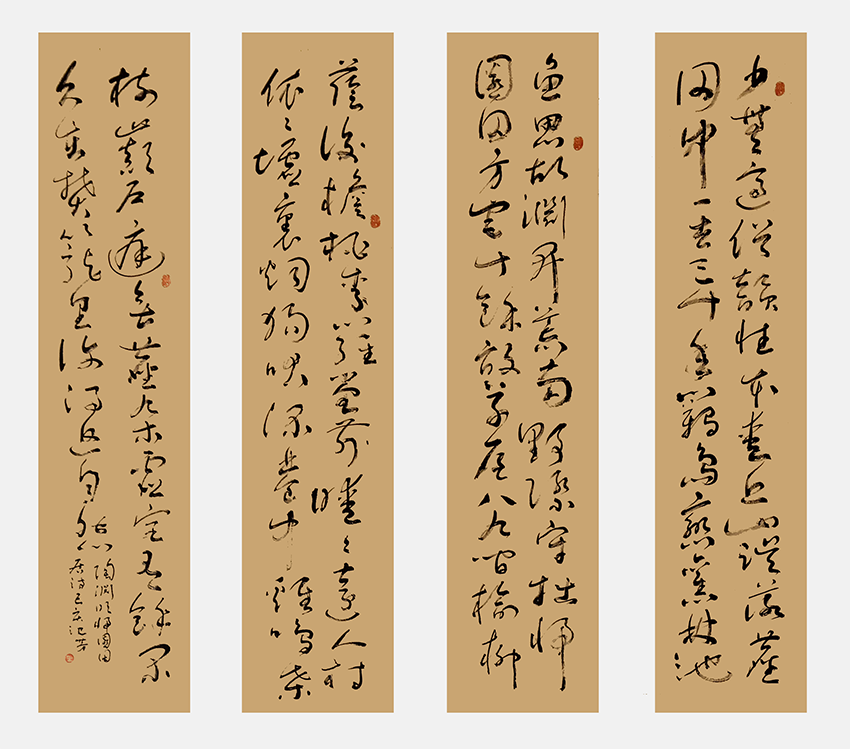 少無適俗韻性本愛丘山誤落塵
网中一去三十年羈鳥戀舊林池
魚思故淵開荒南野際守拙歸
園田方宅十餘畝草屋八九間榆柳
蔭後檐桃李羅堂前曖〻遠人村
依〻墟裏烟狗吠深巷中雞鳴桑
樹巔户庭無塵雜虛室有餘閑
久在樊籠里復得返自然
陶淵明歸園田
居詩己亥